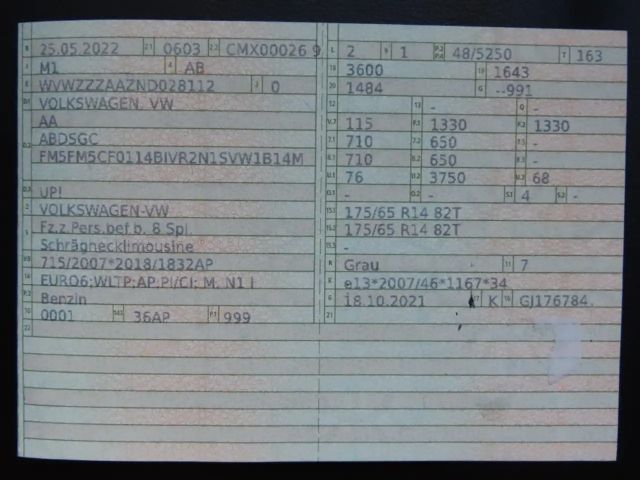 B 25.05.2022 2.1 0603 2.2 CMX00026 9
J M1 4 AB
E WVWZZZAAZND028112 3 0
D.1 VOLKSWAGEN. VW
AA
ABDSGC
D.2 FM5FM5CF0114BIVR2N1SVW1B14M
D.3 UP!
2 VOLKSWAGEN-VW
5 Fz.z.Pers.bef.b. 8 Spl.
Schrägnecklimousine
V.9 715/2007*2018/1832AP
14 EURO6;WLTP;AP,PI/CI; M, N1 I
P.3 Benzin
10 0001 14.1 36AP P.1 999
22
L 2 9 1 P.2 P.4 48/5250 T 163
18 3600 19 1643
20 1484 G --991
12 - 13 - Q -
V.7 115 F.1 1330 F.2 1330
7.1 710 7.2 650 7.3 -
8.1 710 8.2 650 8.3 -
U.1 76 U.2 3750 U.3 68
O.1 - O.2 - S.1 4 S.2 -
15.1 175/65 R14 82T
15.2 175/65 R14 82T
15.3 -
R Grau 11 7
K e13*2007/46*1167*34
6 18.10.2021 17 K 16 GJ176784.
21